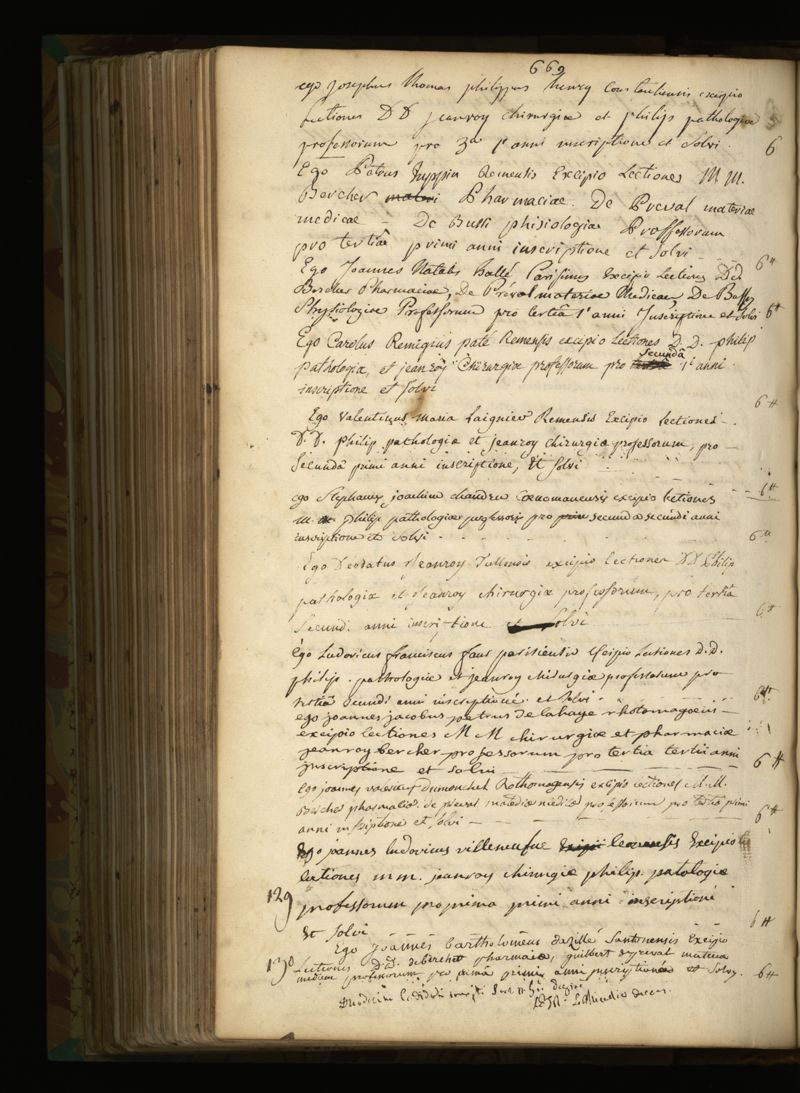 669
ego Josephus Thomas philippus henry Constantiensis excipio
lectiones D D jeanroy chirurgiæ et philip pathologiæ
professorum pro 3a 1i anni inscriptione et solvi. 6
Ego Petrus Remensis Excipio Lectiones M M.
Bercher Pharmaciæ. De Preval materiæ
medicae – De Bussi phisiologiæ Proffessorum
pro tertiâ primi anni inscriptione et solvi - - 6#
Ego Joannes Natalis hallé Parisinus Excipio Lectiones D d
Bercher Pharmaciæ, De Préval materiæ Medicæ, De Bussy
Physiologiæ Professorum pro tertiâ 1i anni Inscriptione et solvi 6#
Ego Carolus Remigius paté Remensis excipio lectiones D. D. philip
pathologiæ, et jeanroy Chirurgiæ professorum pro secundâ 1i anni
inscriptione et solvi
6#
Ego Valentinus maria Laignier Remensis Excipio lectiones
D. D. philip pathologiæ et jeanroy chirurgiæ professorum, pro
secundâ primi anni inscriptione, Et solvi
ego Stephanus joachim chandru Cænomanensis excipio lectiones 6#
m. philip pathologiæ professoris pro secunda secundi anni
inscriptione et solvi 6#
Ego Deodatus Jeanroy Tullensis excipio lectiones D D Philip
pathologiæ et Jeanroy chirurgiæ professorum, pro tertiâ
secundi anni inscriptione et solvi 6#
Ego Ludovicus franciscus faut parisiensis Excipio Lectiones D. D.
philip. pathologiæ et jeanroy chirurgiæ professorum pro
tertiâ secundi anni inscriptione et solvi 6#
ego joannes jacobus petrus delahaye rhotomagæus
excipio lectiones M M chirurgiæ et pharmaciæ
jeanroy bercher professorum pro tertia tertii anni
inscriptione et solvi 6#
Ego joannes Dumonchel Rothomagensis excipio lectiones M. M.
Bercher pharmaciæ. de preval materiæ medicæ professorum pro tertiâ primi
anni inscriptione et solvi 6#
Ego joannes ludovicus villeneufve Excipio
lectiones m m. jeanroy chirurgiæ philip. patologiæ
129 professorum pro prima primi anni inscriptioni
Et solvi 6#
Ego Joannes bartholomeus dazille Santonensis Excipio
130 Lectiones D. D. de bercher pharmaciæ, guilbert de preval materiæ
medicæ professorum pro prima primi anni inscriptione et solvi. 6#